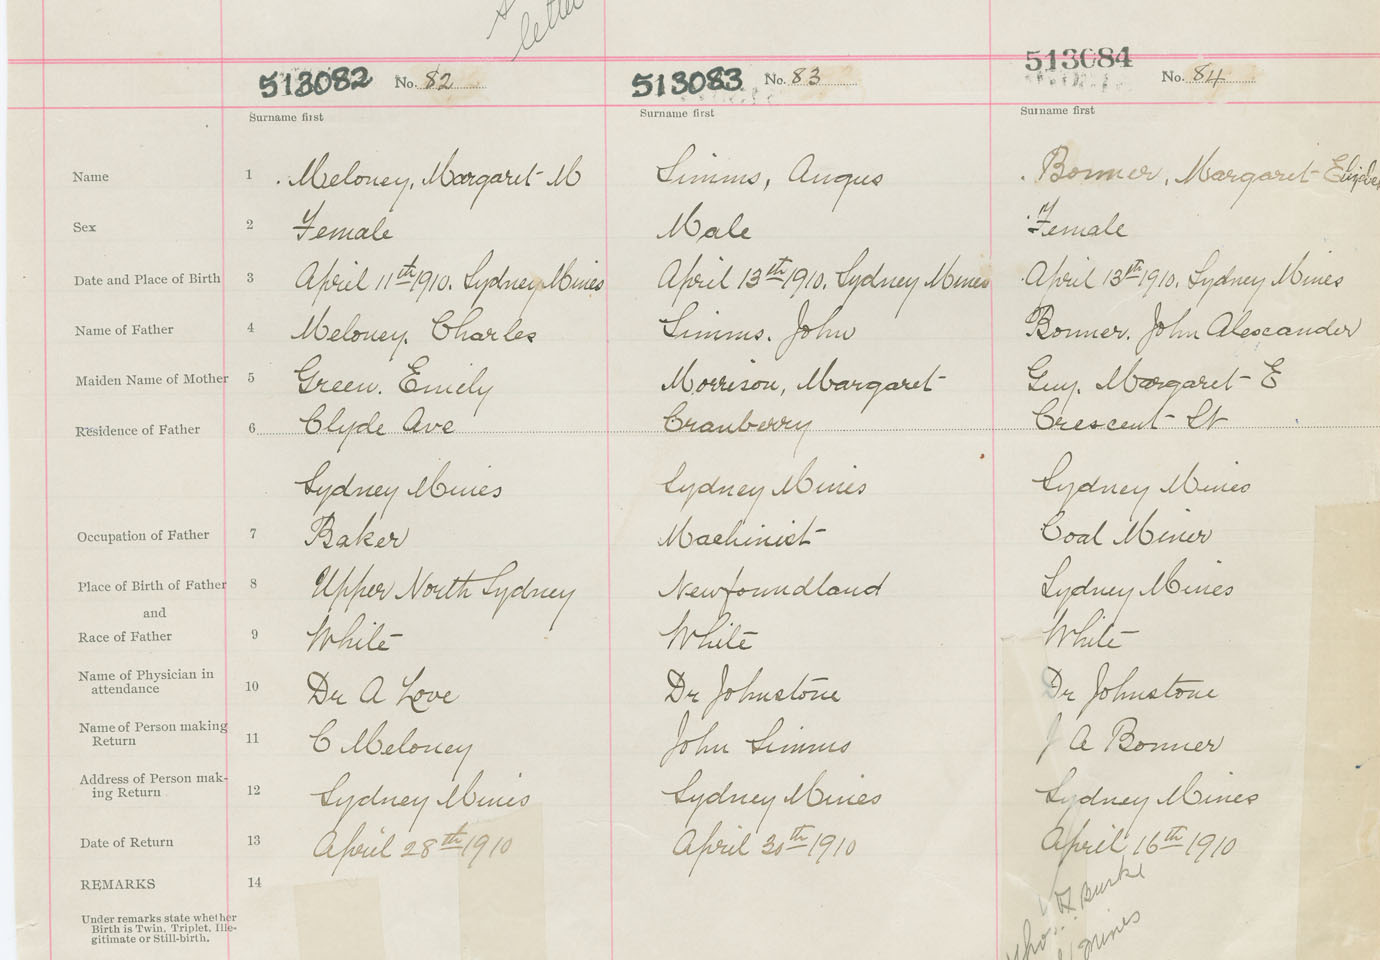 letter
513082 No. 82 513083 No. 83 513084 No. 84
Surname first Surname first Surname first
Name 1 Meloney, Margaret M Simms, Angus Bonner, Margaret
Sex 2 Female Male Female
Date and Place of Birth 3 April 11th 1910. Sydney Mines April 13th 1910. Sydney Mines April 13th 1910. Sydney Mines
Name of Father 4 Meloney. Charles Simms. John Bonner. John Alexander
Maiden Name of Mother 5 Green. Emily Morrison, Margaret Guy. Margaret E
Residence of Father 6 Clyde Ave Cranberry Crescent St
Sydney Mines Sydney Mines Sydney Mines
Occupation of Father 7 Baker Machinist Coal Miner
Place of Birth of Father 8 Upper North Sydney Newfoundland Sydney Mines
and
Race of Father 9 White White White
Name of Physician in
attendance 10 Dr A Love Dr Johnstone Dr Johnstone
Name of Person making
Return 11 C Meloney John Simms J A Bonner
Address of Person mak-
ing Return 12 Sydney Mines Sydney Mines Sydney Mines
Date of Return 13 April 28th 1910 April 30th 1910 April 16th 1910
REMARKS 14
Under remarks state whether
Birth is Twin, Triplet, Ille-
gitimate or Still-birth.
Burke
Mines